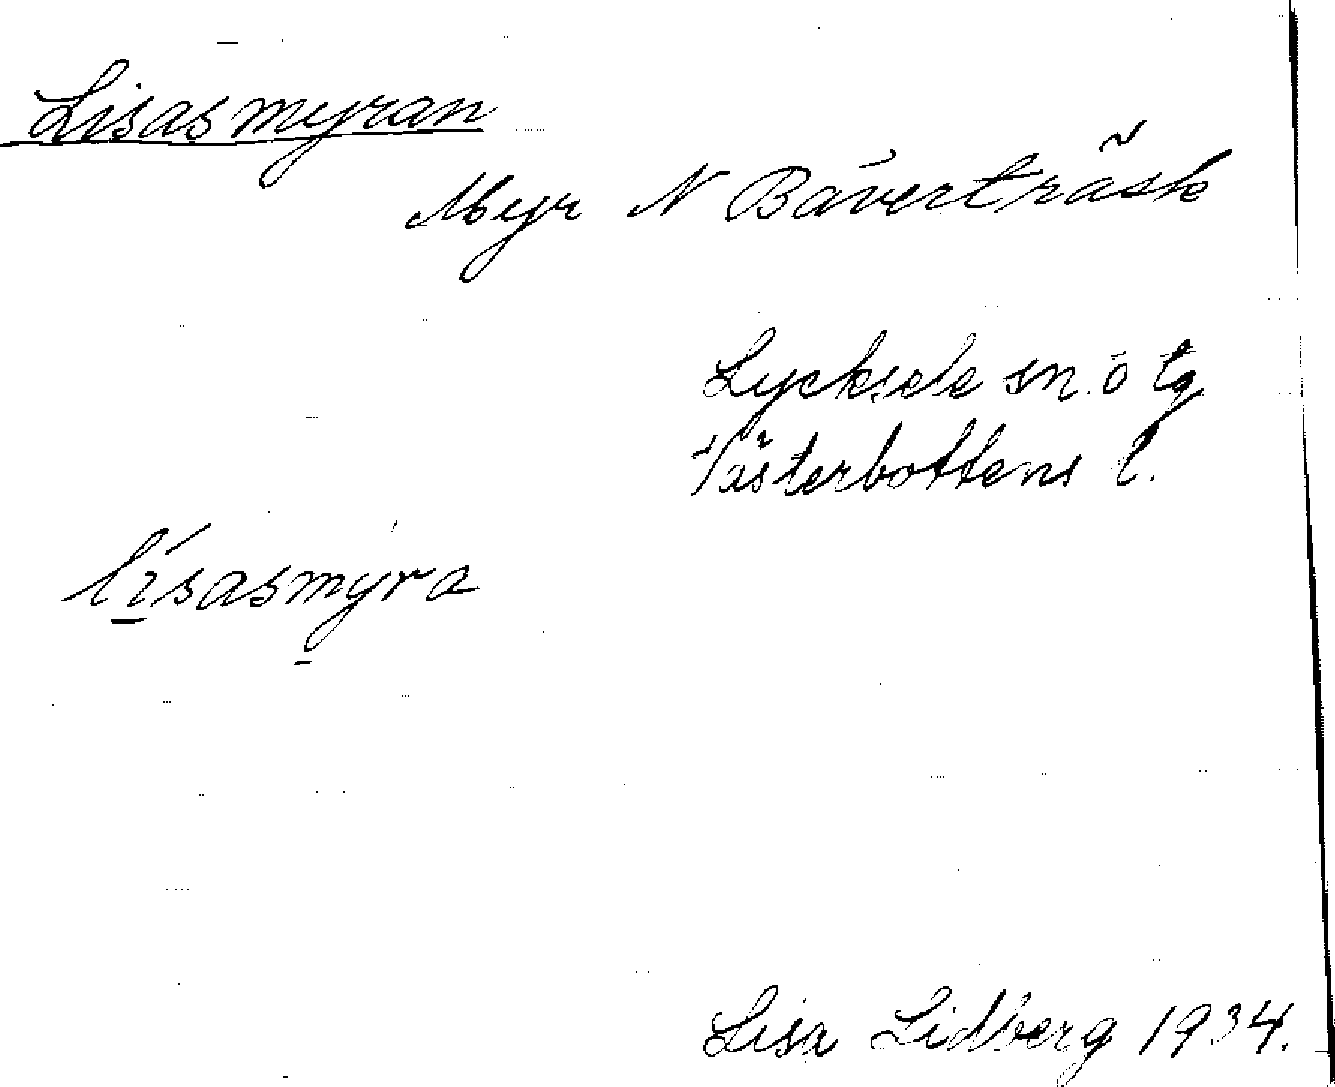 Lisasmyran
Myr N Bäverträsk
Lycksele sn. o tg
Västerbottens l.
lísasmyra
Lisa Lidberg 1934.